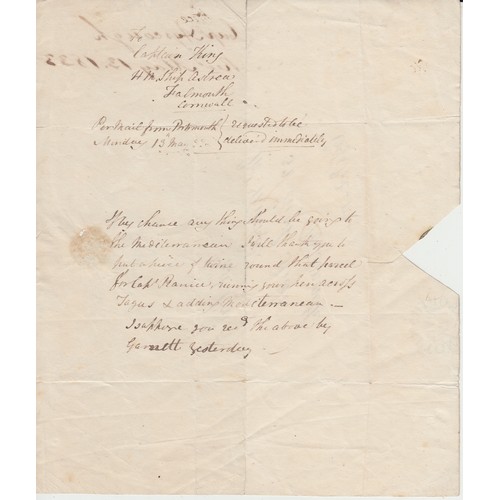 Captain King
H M Ship Astrea
Falmouth
Cornwall
Per Mail from Portsmouth } requested to be
Monday 13th May } deliverd immediately
If by chance any thing should be going to
the Mediterranean I will thank you to
put a piece of twine round that parcel
for Capt. running your pen across
Tagus & adding Mediterranean. —
I suppose you recd the above by
Garrett Yesterday —